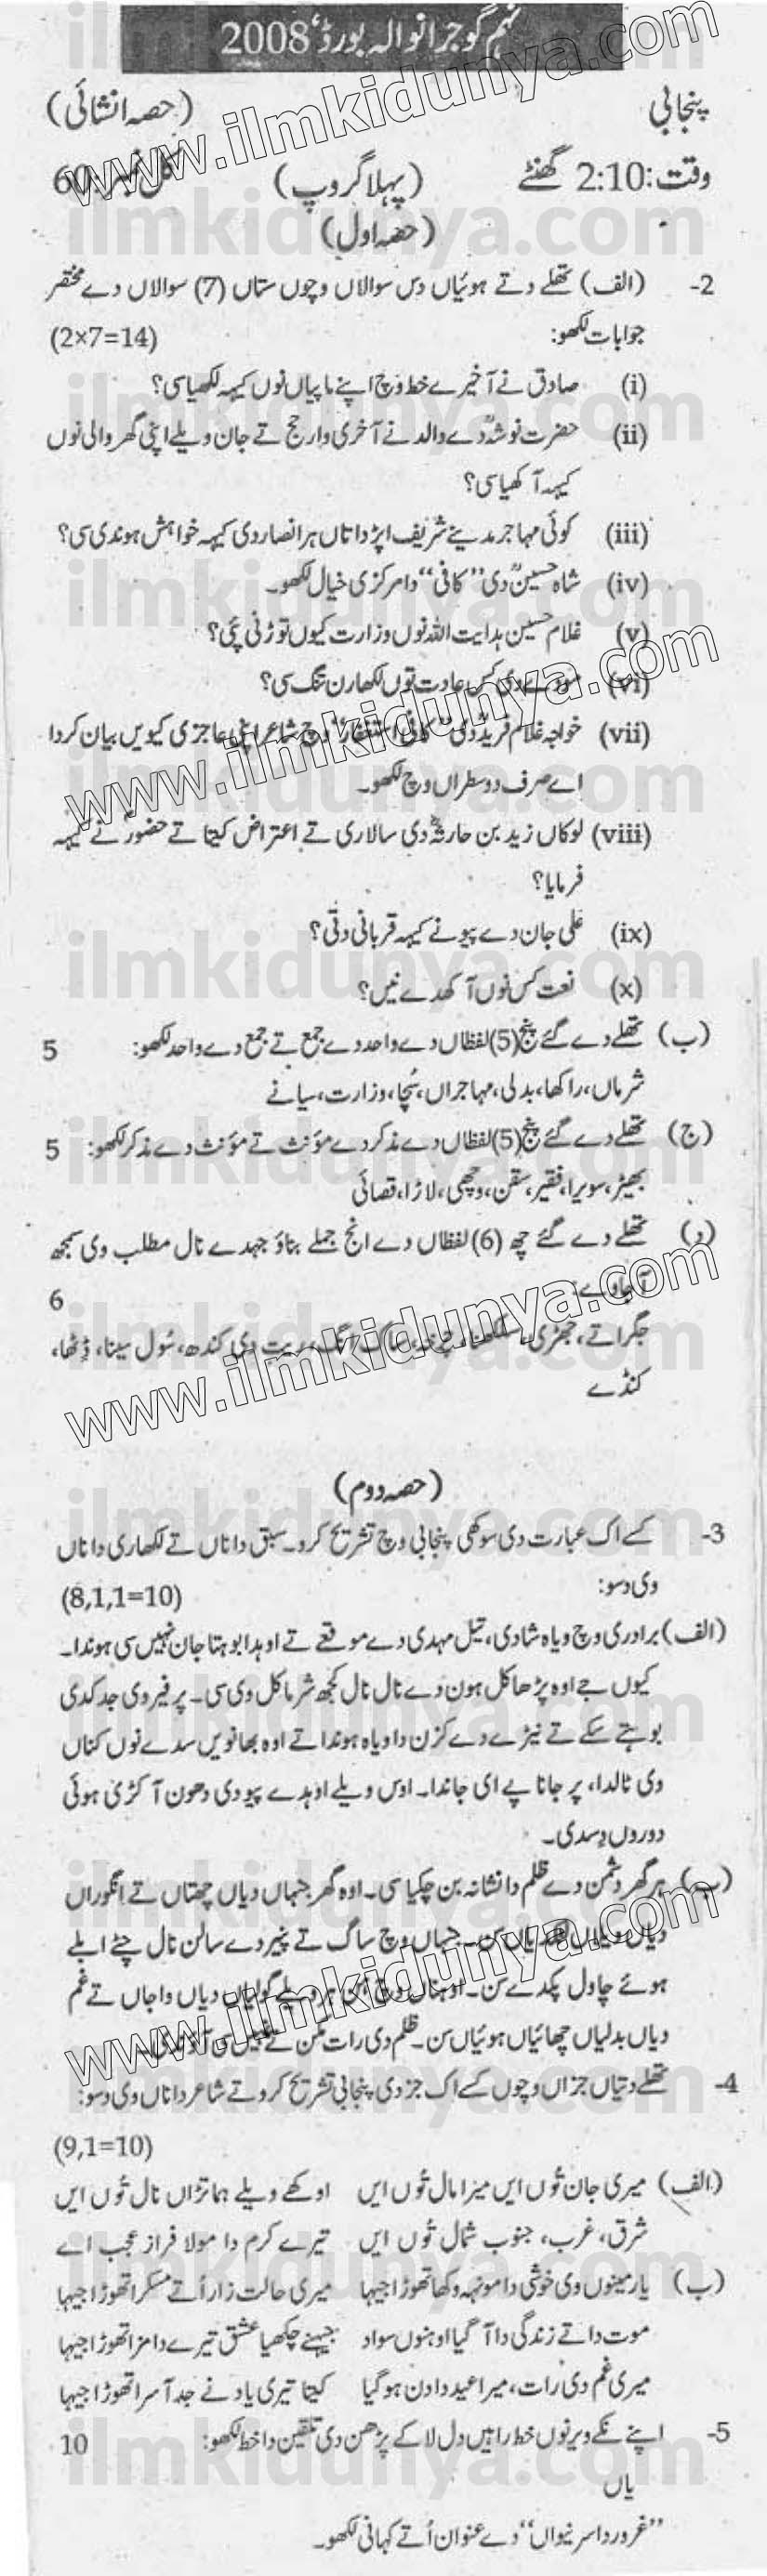 نہم گوجرانوالہ بورڈ، 2008
پنجابی (حصہ انشائی)
وقت: 2:10 گھنٹے (پہلا گروپ) کل نمبر: 60
(حصہ اول)
2- (الف) تھلے دتے ہوئیاں دس سوالاں وچوں ستاں (7) سوالاں دے مختصر
جوابات لکھو: (2×7=14)
(i) صادق نے آخیرے خط وچ اپنے ماپیاں نوں کیہہ لکھیا سی؟
(ii) حضرت نوشہؒ دے والد نے آخری وار حج تے جان ویلے اپنی گھر والی نوں
کیہہ آکھیا سی؟
(iii) کوئی مہاجر مدینے شریف اپڑدا تاں ہر انصار دی کیہہ خواہش ہوندی سی؟
(iv) شاہ حسینؒ دی ”کافی“ دا مرکزی خیال لکھو۔
(v) غلام حسین ہدایت اللہ نوں وزارت کیوں توڑنی پئی؟
(vi) دی کس عادت توں لکھارن تنگ سی؟
(vii) خواجہ غلام فریدؒ دی ”کافی وچ شاعر اپنی عاجزی کیویں بیان کردا
اے صرف دو سطراں وچ لکھو۔
(viii) لوکاں زید بن حارثہؓ دی سالاری تے اعتراض کیتا تے حضورؐ نے کیہہ
فرمایا؟
(ix) علی جان دے پیو نے کیہہ قربانی دتی؟
(x) نعت کس نوں آکھدے نیں؟
(ب) تھلے دے گئے پنج (5) لفظاں دے واحد دے جمع تے جمع دے واحد لکھو: 5
شرماں، راکھا، بدلی، مہاجراں، سُچا، وزارت، سیانے
(ج) تھلے دے گئے پنج (5) لفظاں دے مذکر دے مؤنث تے مؤنث دے مذکر لکھو: 5
بھیڑ، سویرا، فقیر، سقن، وچھی، لاڑا، قصائی
(د) تھلے دے گئے چھ (6) لفظاں دے انج جملے بناؤ جہدے نال مطلب وی سمجھ
آ جاوے: 6
جگراتے، جھڑی، ریت دی کندھ، سُول سینا، ڈِٹھا،
کنڈے
(حصہ دوم)
3- کسے اک عبارت دی سوکھی پنجابی وچ تشریح کرو۔ سبق دا ناں تے لکھاری دا ناں
وی دسو: (8,1,1=10)
(الف) برادری وچ ویاہ شادی، تیل مہدی دے موقعے تے اوہدا بوہتا جان نہیں سی ہوندا۔
کیوں جے اوہ پڑھاکل ہون دے نال نال کجھ شرماکل وی سی۔ پر فیر وی جد کدی
بوہتے سکے تے نیڑے دے کزن دا ویاہ ہوندا تے اوہ بھانویں سدے نوں کناں
وی ٹالدا، پر جانا پے ای جاندا۔ اوس ویلے اوہدے پیو دی دھون آکڑی ہوئی
دوروں دِسدی۔
(ب) ہر گھر دشمن دے ظلم دا نشانہ بن چکیا سی۔ اوہ گھر جنہاں دیاں چھتاں تے انگوراں
دیاں ویلاں سن۔ جنہاں وچ ساگ تے پنیر دے سالن نال چٹے ابلے
ہوئے چاول پکدے سن۔ اوہناں وچ ہن ہر ویلے گولیاں دیاں واجاں تے غم
دیاں بدلیاں چھائیاں ہوئیاں سن۔ ظلم دی رات مُکن تے نہیں سی
4- تھلے دتیاں جزاں وچوں کسے اک جز دی پنجابی تشریح کرو تے شاعر دا ناں وی دسو:
(9,1=10)
(الف) میری جان تُوں ایں میرا مال تُوں ایں اوکھے ویلے ہماتڑاں نال تُوں ایں
شرق، غرب، جنوب شمال تُوں ایں تیرے کرم دا مولا فراز عجب اے
(ب) یار مینوں وی خوشی دا مونہہ وکھا تھوڑا جیہا میری حالت زار اُتے مسکرا تھوڑا جیہا
موت دا تے زندگی دا آ گیا اوہنوں سواد جیہنے چکھیا عشق تیرے دا مزا تھوڑا جیہا
میری غم دی رات، میرا عید دا دن ہو گیا کیتا تیری یاد نے جد آسرا تھوڑا جیہا
5- اپنے نکے ویر نوں خط راہیں دل لا کے پڑھن دی تلقین دا خط لکھو: 10
یاں
”غرور دا سر نیواں“ دے عنوان اُتے کہانی لکھو۔
www.ilmkidunya.com
www.ilmkidunya.com
www.ilmkidunya.com
www.ilmkidunya.com